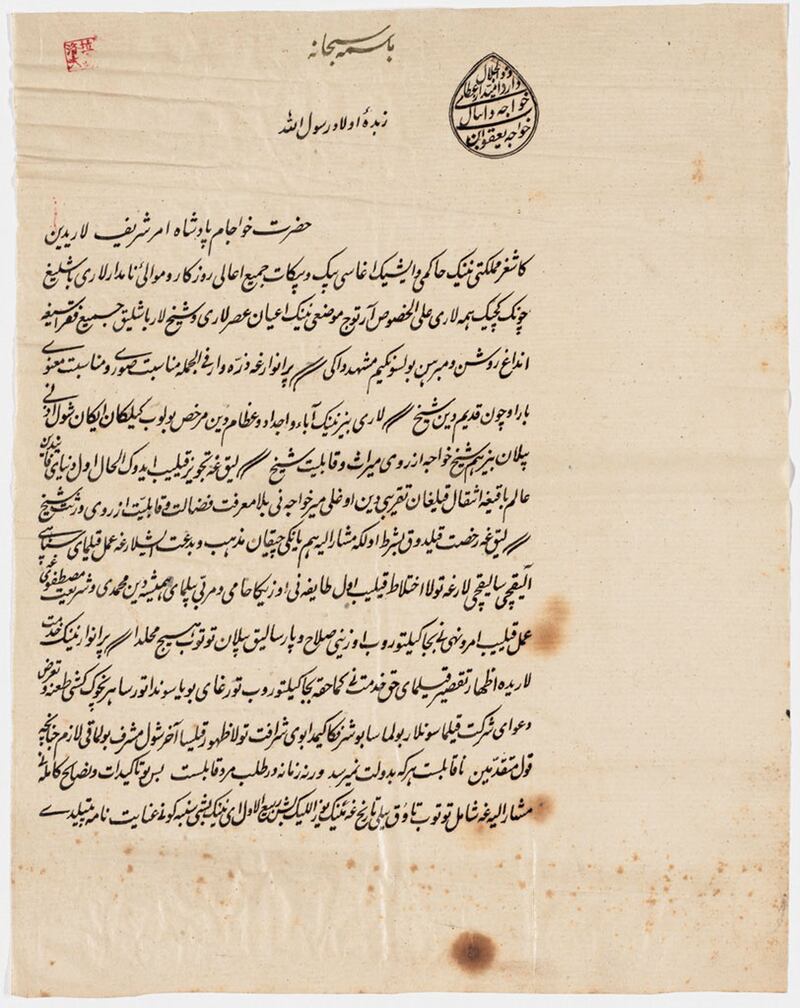 باسمه سبحانه
زبدۀ اولاد رسول الله
ذو الجلال
دارد امید از عطای
خواجه دانیال
خواجه یعقوب ابن
حضرت خواجام پادشاه امر شریف لاریدین
کاشغر مملکتی ننیک حاکمی وایشیک اغاسی بیک و بیکات جمیع اعالی روزکار و موالئ نامدار لاری باشلیغ
چونک کچیک همه لاری علی الخصوص آرتوج موضعی ننیک اعیان عصر لاری و شیخ لار باشلیق جمیع فقراسیغه
انداغ روشن و مبرهن بولسونکیم مشهد داکی پر انوارغه ذره وار فی الجمله مناسبت صوری و مناسبت معنوی
بار اوچون قدیم دین شیخ لاری بیزننیک آباء و اجداد و عظام دین مرخص بولوب کیلکان ایکان شول
بیلان بیز هم شیخ خواجه از روی میراث و قابلیت شیخ لیق غه تجویز قیلیب ایدوک الحال اول دنیای
عالم باقیغه انتقال قیلغان تقریبی دین اوغلی میر خواجه نی بلا معرفت فضالت و قابلیت از روی ورثت شیخ
لیق غه رخصت قیلدوق بشرط اولکه مشار الیه هم یانکی چیقان مذهب و بدعت ایشلارغه عمل قیلمای
آلیقچی سالیقچی لارغه تولا اختلاط قیلیب اول طایفه نی اوزیکا حامی و مربی بیلمای همیشه دین محمدی و شریعت مصطفوی غه
عمل قیلیب امر و نهی نی بجا کیلتوروب اوزینی صلاح و پارسالیق بیلان توتوب هیچ محلدا پر انوار ننیک خدمت
لاریده اظهار تقصیر قیلمای حق خدمت نی کما حقه بجا کیلتوروب تورغای بو یاسوندا تورسا هر نچوک کشی طعنه و تعرض
و دعوای شرکت قیلماسونلار بولماسا بو شرفکا کیم ابوی شرافت تولا ظهور قیلیسا آخر شول مشرف بولماقی لازم چنانچه
قول متقدمین ناقابلست هر که بدولت نمیرسد ورنه زمانه در طلب مرد قابلست بس بو تاکیدات و نصایح کامله نی
مشار الیه غه شامل توتوب تاوق ییلی تاریخ غه مینک یوز اللیک بیش ربیع الاول ای ننیک شنبه کونی عنایت نامه بیتیلدی